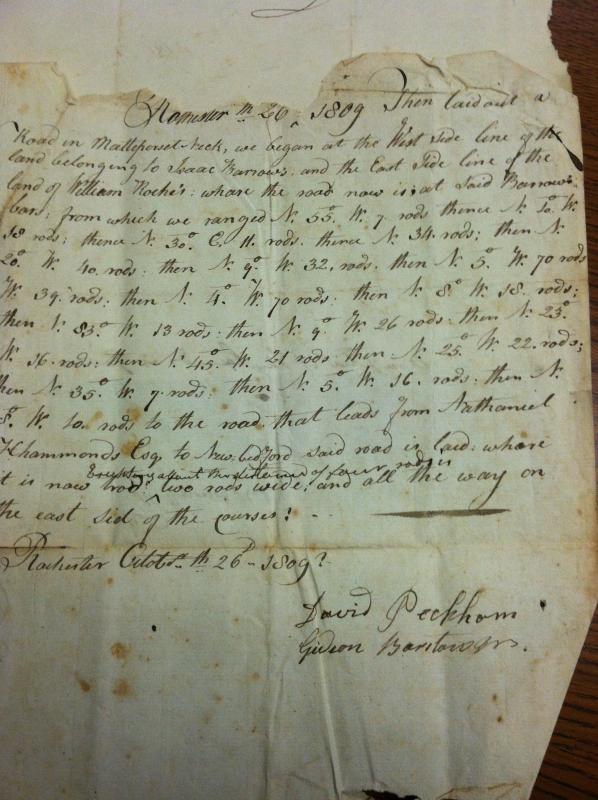 th 26 1809 Then laid out a
Road in Mattepoiset-Neck, we began at the West Side line of the
land belonging to Isaac Barrows, and the East Side line of the
land of William Roches: whare the road now is; at Said Barrows
bars; from which we ranged N. 55° W. 7 rods thence N. 10° W.
18 rods; thence N. 30° E. 11. rods. thence N. 34 rods; then N.
20° W. 40 rods: then N. 9° W. 32. rods. then N. 5° W. 70 rods
W. 39 rods; then N. 4° W. 70 rods: then N. 8° W. 18. rods;
then N. 83° W. 13 rods: then N. 9° W. 26 rods: then N. 23°
W. 16. rods; then N. 45° W. 21 rods then N. 25° W. 22. rods;
then N. 35° W. 7 rods: then N. 5° W. 16. rods: then N.
5° W. 10 rods to the road that leads from Nathaniel
Hhammonds Esq. to New bedford said road is laid: whare
Excepting about the distance of four rods is
it is now trod: two rods wide, and all the way on
the east sid of the courses:
Rochester Octobr. th 26 - 1809
David Peckham
Gideon Barstow Jr.